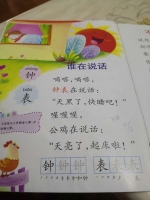 谁在说话
嘀嗒，嘀嗒，
钟表在说话：
“天黑了，快睡吧！”
喔喔喔，
公鸡在说话：
“天亮了，起床啦！”
钟
表
钟 钟 钟 表 表 表